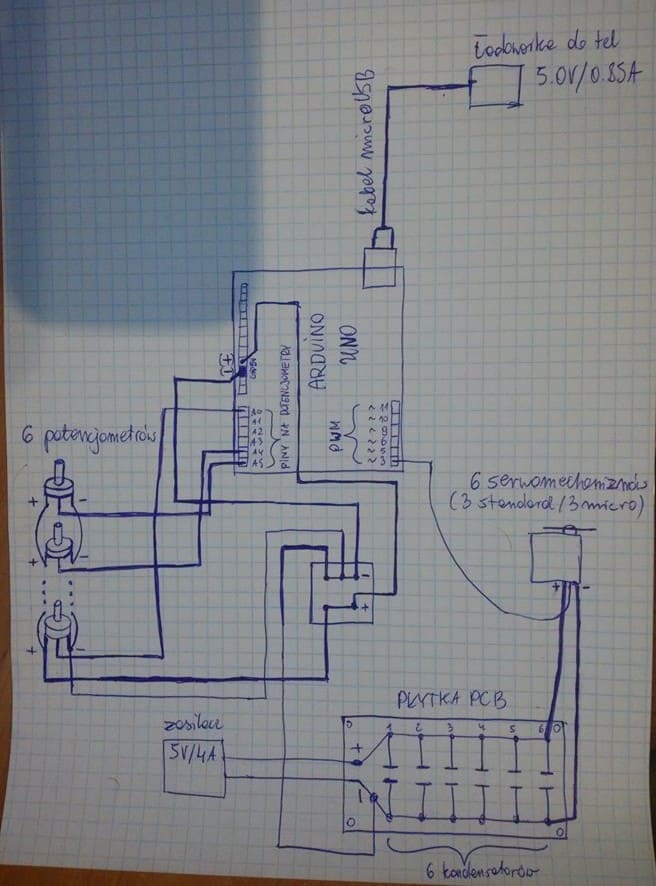 Ładowarka do tel
5.0V/0.85A
kabel microUSB
ARDUINO
UNO
PINY NA POTENCJOMETRY
A0
A1
A2
A3
A4
A5
PWM
~ 11
~ 10
~ 9
~ 6
~ 5
~ 3
6 potencjometrów
+ -
+ -
+ -
6 serwomechanizmów
(3 standard/3 micro)
+ -
-
+
PŁYTKA PCB
zasilacz
5V/4A
+
-
1 2 3 4 5 6
6 kondensatorów